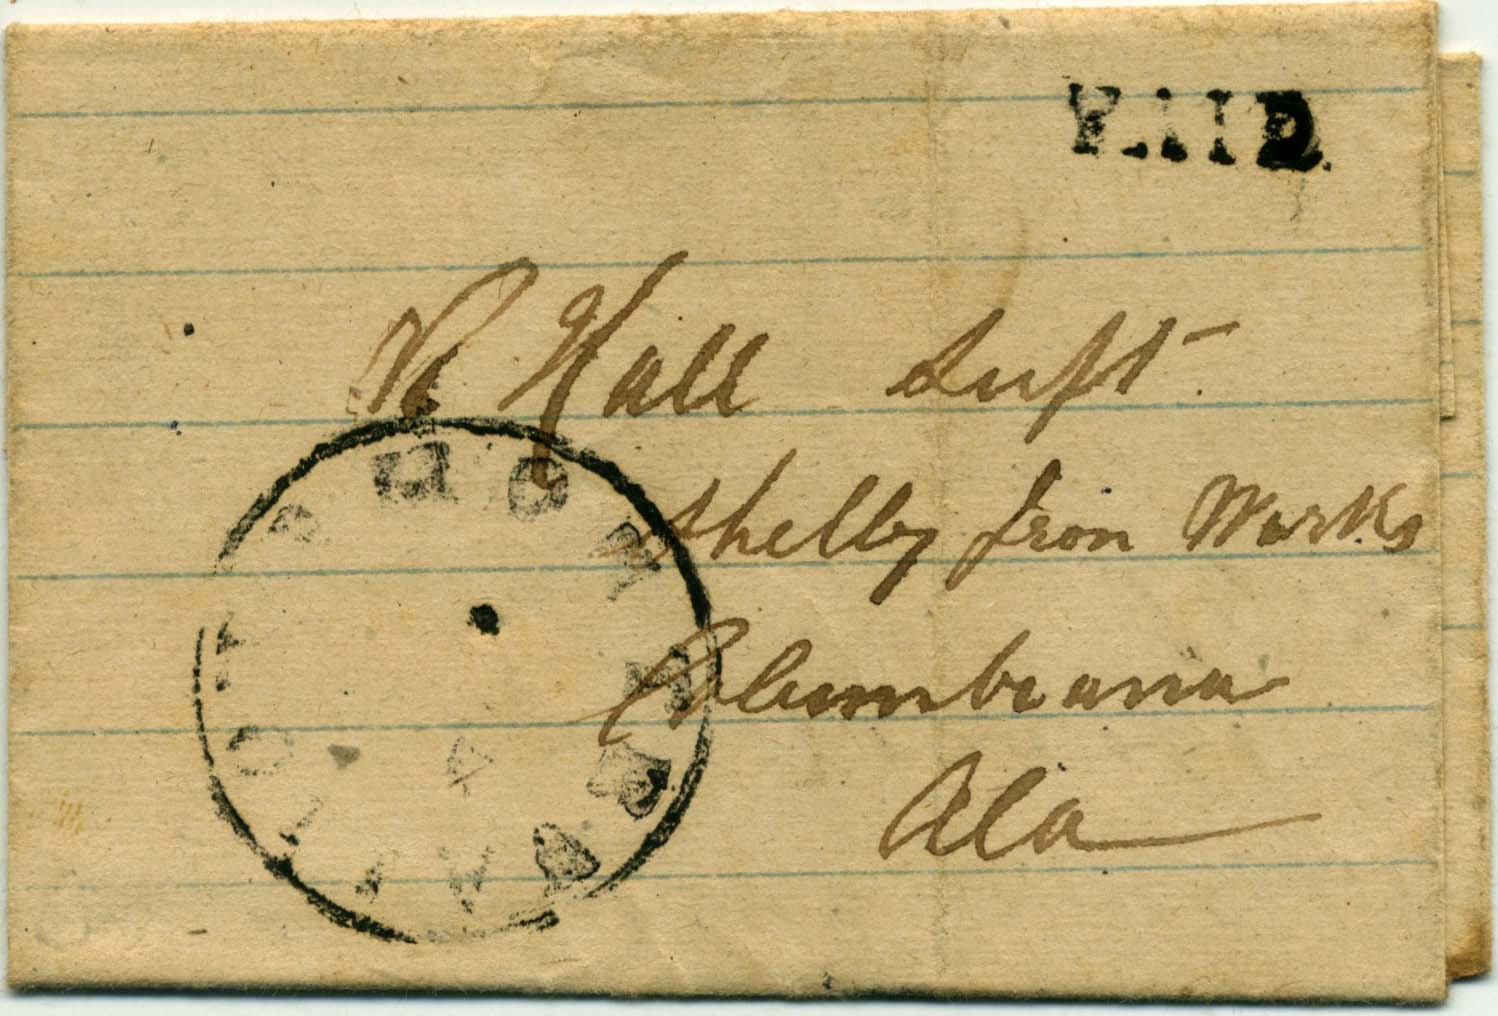 PAID
Hall Supt.
Shelby Iron Works
Columbiana
Ala